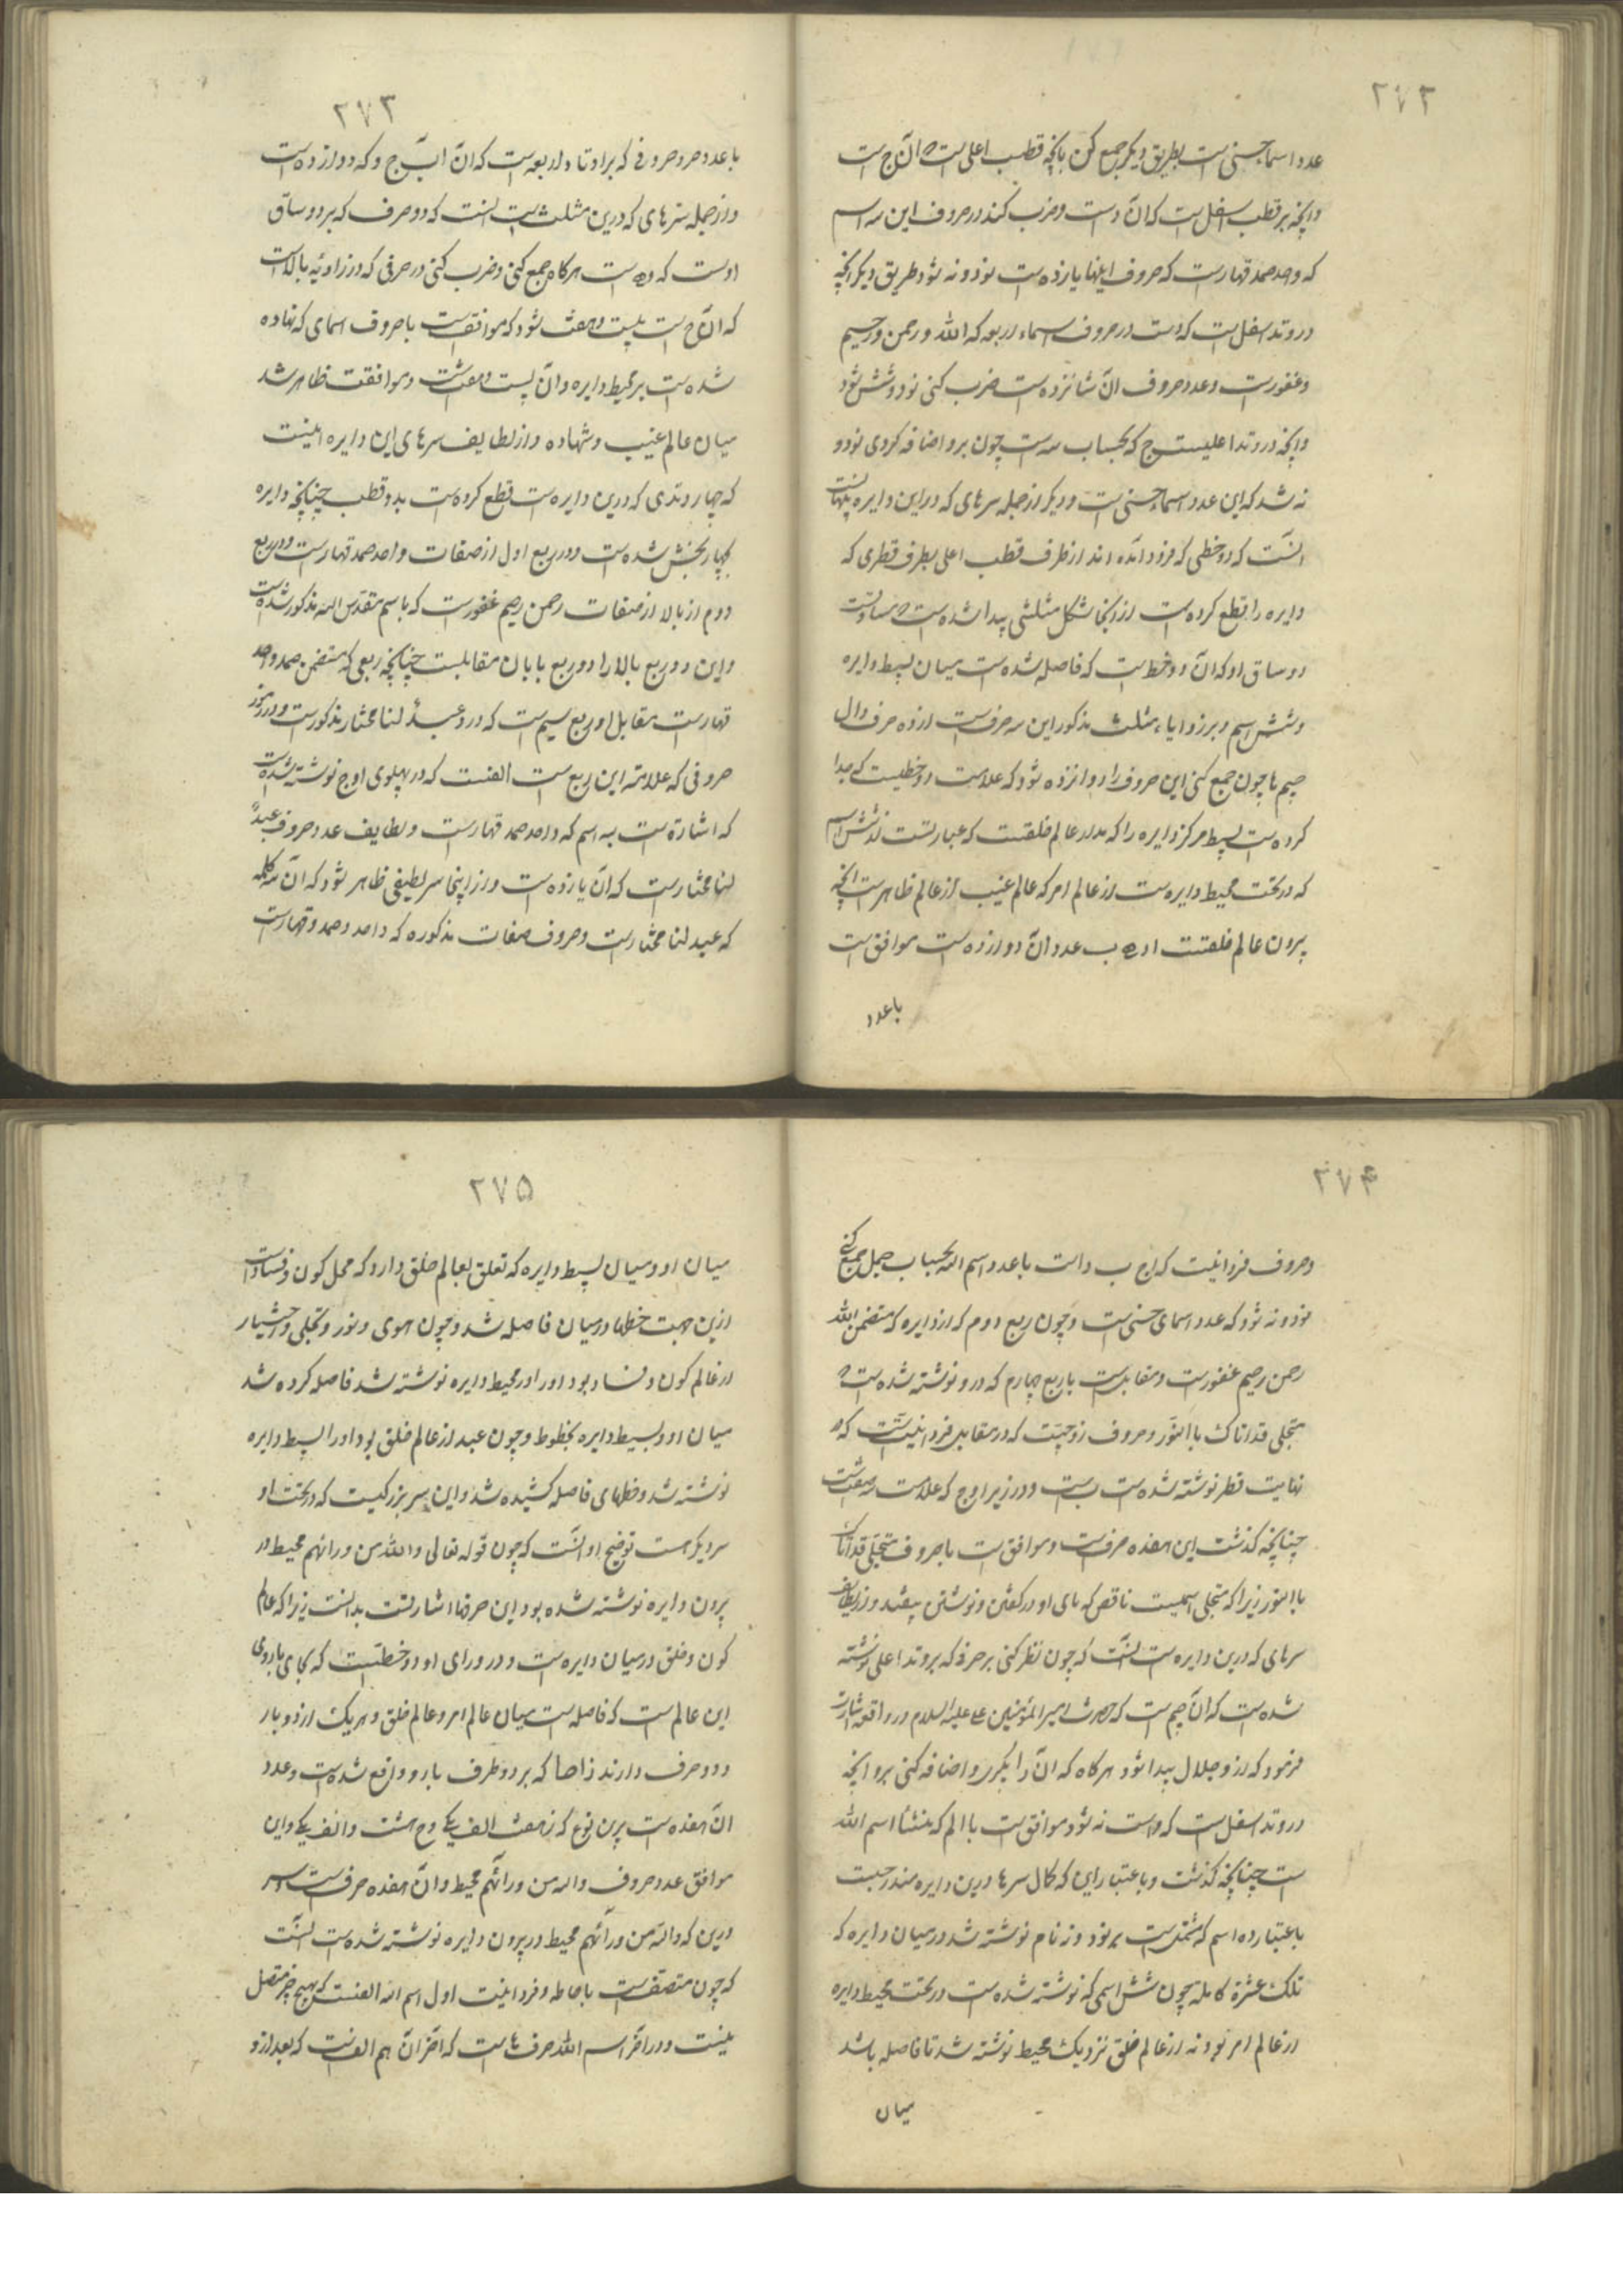 ۲۷۲
عدد اسماء حسنی است بطریق دیگر جمع کن بانچه قطب اعلی است و آن ج است
وانچه بر قطب اسفل است که آن و است وضرب کند در حروف این سه اسم
که واحد صمد قهار است که حروف اینها یازده است نود و نه شود طریق دیگر انچه
در وتد اسفل است که و است در حروف اسماء اربعه که الله و رحمن و رحیم
و غفور است و عدد حروف آن شانزده است ضرب کنی نود و شش شود
وانچه در وتد اعلیست ج که بحساب سه است چون برو اضافه کردی نود و
نه شد که این عدد اسماء حسنی است و دیگر از جمله سرهای که در این دایره پنهانست
آنست که دو خطی که فرود آمده اند از طرف قطب اعلی بطرف قطری که
دایره را قطع کرده است از اینجا شکل مثلثی پیدا شده است و مساویست
دو ساق او که آن دو خط است که فاصله شده است میان بسیط دایره
و شش اسم و بر زوایاء مثلث مذکور این سه حرفست از ده حرف دال
جیم ها چون جمع کنی این حروف را دوازده شود که علامت دو خطیست که جدا
کرده است بسیط مرکز دایره را که مدار عالم خلقست که عبارتست از شش اسم
که در تحت محیط دایره است از عالم امر که عالم غیب از عالم ظاهر است انچه
برون عالم خلقتست ا د ه ب عدد آن دوازده است موافق است
با عدد
۲۷۳
با عدد حروفی که بر اوتاد اربعه است که آن ا ب ج و که دوازده است
و از جمله سرهای که درین مثلث است آنست که دو حرف که بر دو ساق
اوست که ده است هرگاه جمع کنی وضرب کنی در حرفی که در زاویه بالاست
که آن ج است بیست و هفت شود که موافقست با حروف اسمای که نهاده
شده است بر محیط دایره و آن بیست و هفت است و موافقت ظاهر شد
میان عالم غیب و شهاده و از لطایف سرهای این دایره اینست
که چهار وتدی که درین دایره است قطع کرده است بدو قطب چنانچه دایره
بچهار بخش شده است و در ربع اول از صفات واحد صمد قهار است و در ربع
دوم از بالا از صفات رحمن رحیم غفور است که باسم متقدس الله مذکور شده است
و این دو ربع بالا را دو ربع پایان مقابلست چنانچه ربعی که متضمن صمد واحد
قهار است مقابل او ربع سیم است که در و عبدٌ لنا مختار مذکور است و در رموز
حروفی که علامه این ربع است الفست که در پهلوی اوج نوشته شده است
که اشارة است به اسم که واحد صمد قهار است و لطایف عدد حروف عبدٌ
لنا مختار است که آن یازده است و از اینجا سر لطیفی ظاهر شود که آن سه کلمه
که عبد لنا مختار است و حروف صفات مذکوره که واحد و صمد و قهار است
۲۷۴
وحروف فردانیت که ا ج ب د است با عدد اسم الله بحساب جمل جمع کنی
نود و نه شود که عدد اسمای حسنی است و چون ربع دوم که از دایره که متضمن الله
رحمن رحیم غفور است و مقابل است با ربع چهارم که در و نوشته شده است و
متجلی قد اتاک با النور و حروف زوجیّت که در مقابل فردانیت است که در
نهایت قطر نوشته شده است ب است و در زیر اوج که علامت سه صفت است
چنانچه گذشت این هفده حرفست و موافق است با حروف متجلی قد اتاک
با النور زیرا که متجلی اسمیست ناقص که یای او در گفتن و نوشتن بیفتد و از لطایف
سرهای که درین دایره است آنست که چون نظر کنی بر حرفی که بر وتد اعلی نوشته
شده است که آن جیم است که حضرت امیر المؤمنین علی علیه السلام در واقعه اشارت
فرمود که از و جلال پیدا شود هرگاه که آن را بگیری و اضافه کنی بر و انچه
در وتد اسفل است که و است نه شود موافق است با الم که منشأ اسم الله
است چنانچه گذشت و باعتبار این که کمال سرها درین دایره مندرجست
باعتبار ده اسم که مشتمل است بر نود و نه نام نوشته شد در میان دایره که
تلک عشرة کامله چون شش اسمی که نوشته شده است در تحت محیط دایره
از عالم امر بود نه از عالم خلق نزدیک محیط نوشته شد تا فاصله باشد
میان
۲۷۵
میان او و میان بسیط دایره که تعلق بعالم خلق دارد که محل کون و فساد است
ازین جهت خطها در میان فاصله شد و چون هوی و نور و تجلی و اختیار
از عالم کون و فساد بود او را در محیط دایره نوشته شد فاصله کرده شد
میان او و بسیط دایره بخطوط و چون عبد از عالم خلق بود او را بسیط دایره
نوشته شد و خطهای فاصل کشیده شد و این سر بزرگیست که در تحت او
سر دیگر هست توضیح او آنست که چون قوله تعالی والله من ورائهم محیط در
برون دایره نوشته شده بود این حرفها اشارتست بدانست زیرا که عالم
کون و خلق در میان دایره است و در ورای او دو خطست که بجای باروی
این عالم است که فاصله است میان عالم امر و عالم خلق و هر یک از دو بار
دو حرف دارند ز ا ح ا که بر دو طرف بارو واقع شده است و عدد
آن هفده است برین نوع که ز هفت الف یکی و ح هشت و الف یکی و این
موافق عدد حروف والله من ورائهم محیط و آن هفده حرف است و سر
درین که والله من ورائهم محیط در برون دایره نوشته شده است آنست
که چون متصفست باحاطه و فردانیت اول اسم الله الفست که بهیچ چیز متصل
نیست و در آخر اسم الله حرف ها است که آخر آن هم الفست که بعد از و